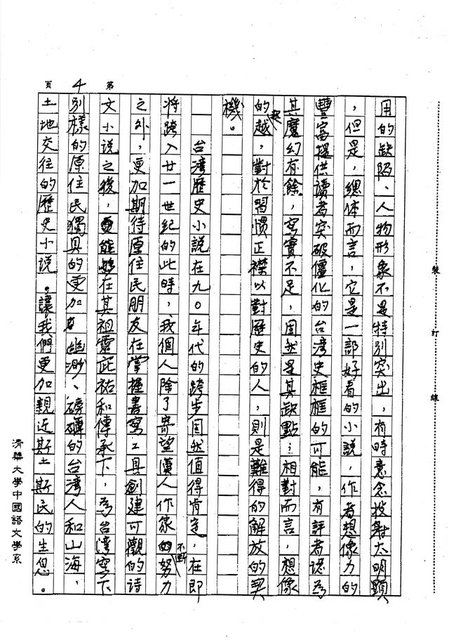 用的缺陷、人物形象不是特別突出，有時意念投射太明顯
，但是，總体而言，它是一部好看的小說，作者想像力的
豐富提供讀者突破僵化的台灣史框框的可能，有評者認為
其魔幻有餘，寫實不足，固然是其缺點；相對而言，想像
的超越，對於習慣正襟以對歷史的人，則是難得的解放的契
機。
台灣歷史小說在九０年代的跨步固然值得肯定，在即
將跨入廿一世紀的此時，我個人除了寄望漢人作家的不斷努力
之外，更加期待原住民朋友在掌握書寫工具創建可觀的詩
文小說之後，更能夠在其祖靈庇祐和傳承下，為台灣寫下
別樣的原住民獨具的更加幽渺、磅礴的台灣人和山海，
土地交往的歷史小說。讓我們更加親近斯土斯民的生息。
第 4 頁
裝 訂 線
清華大學中國語文學系